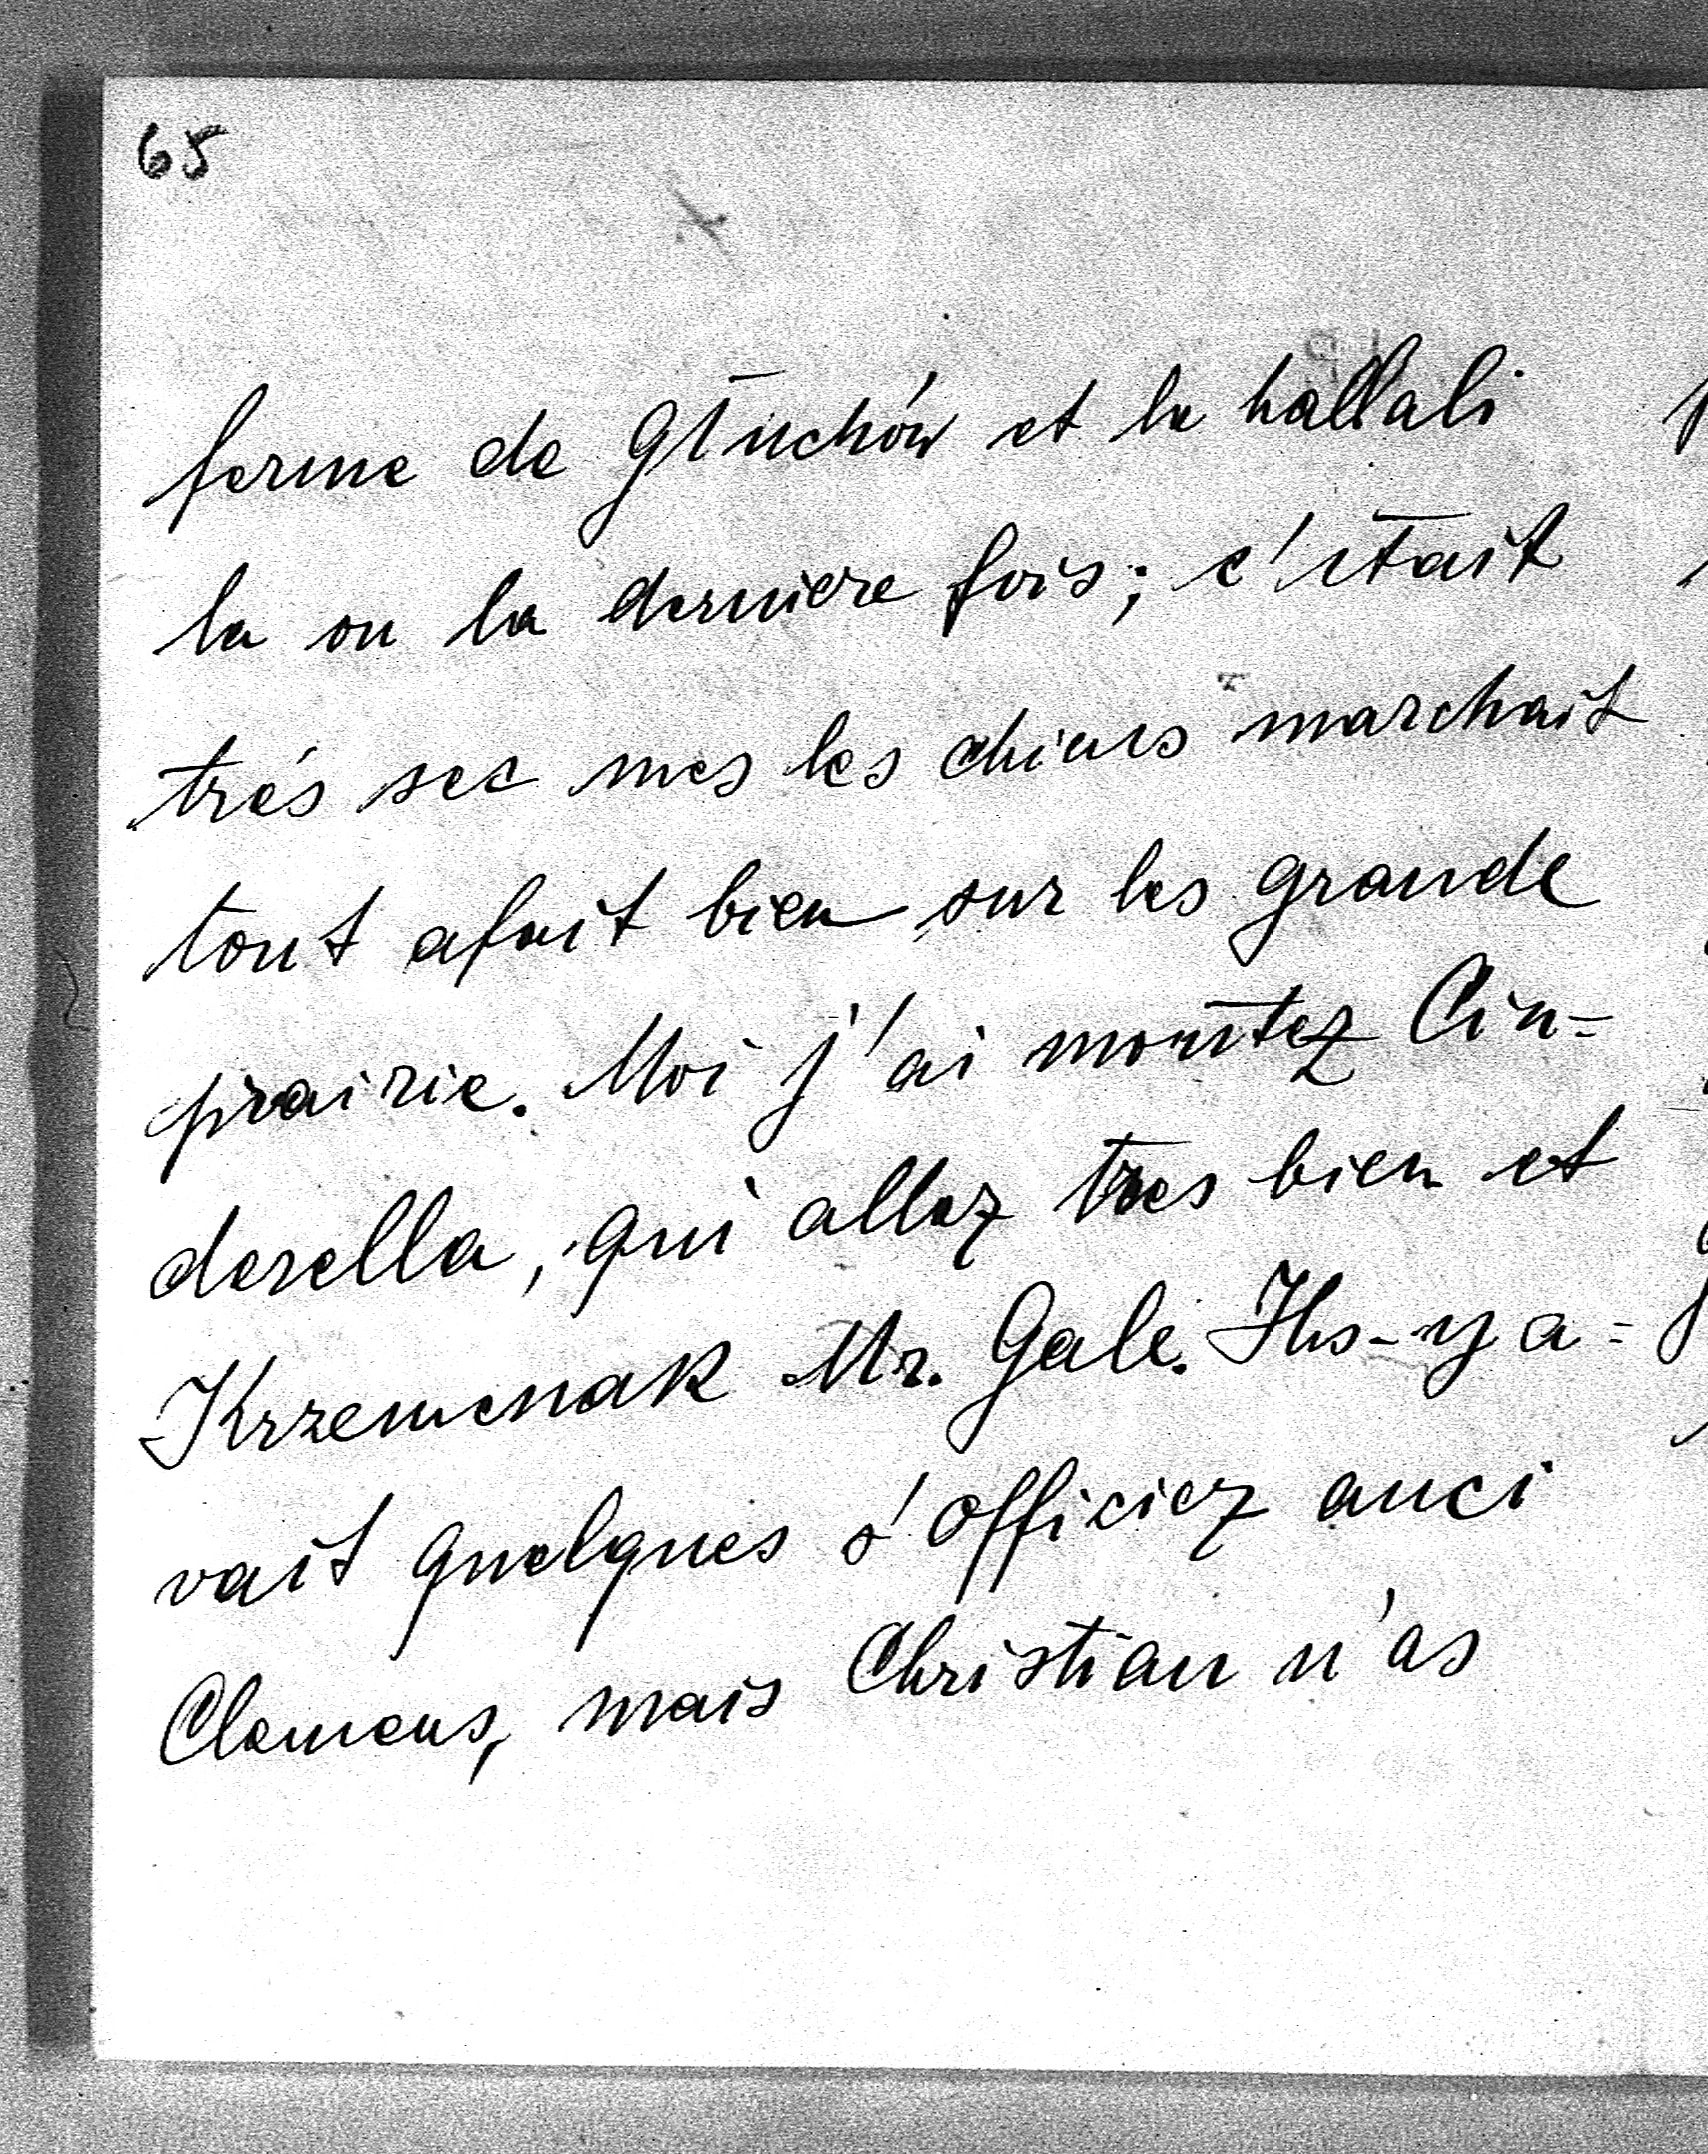 65
ferme de Głuchów et le hallali
la ou la derniere fois; c'était
trés sec mes les chiens marchait
tout afait bien sur les grande
prairie. Moi j'ai montez Cin=
derella, qui allez tres bien et
Krzemenak Mr. Gale. Ils-y a=
vait quelques s'officiez auci
Clemens, mais Christian n'as